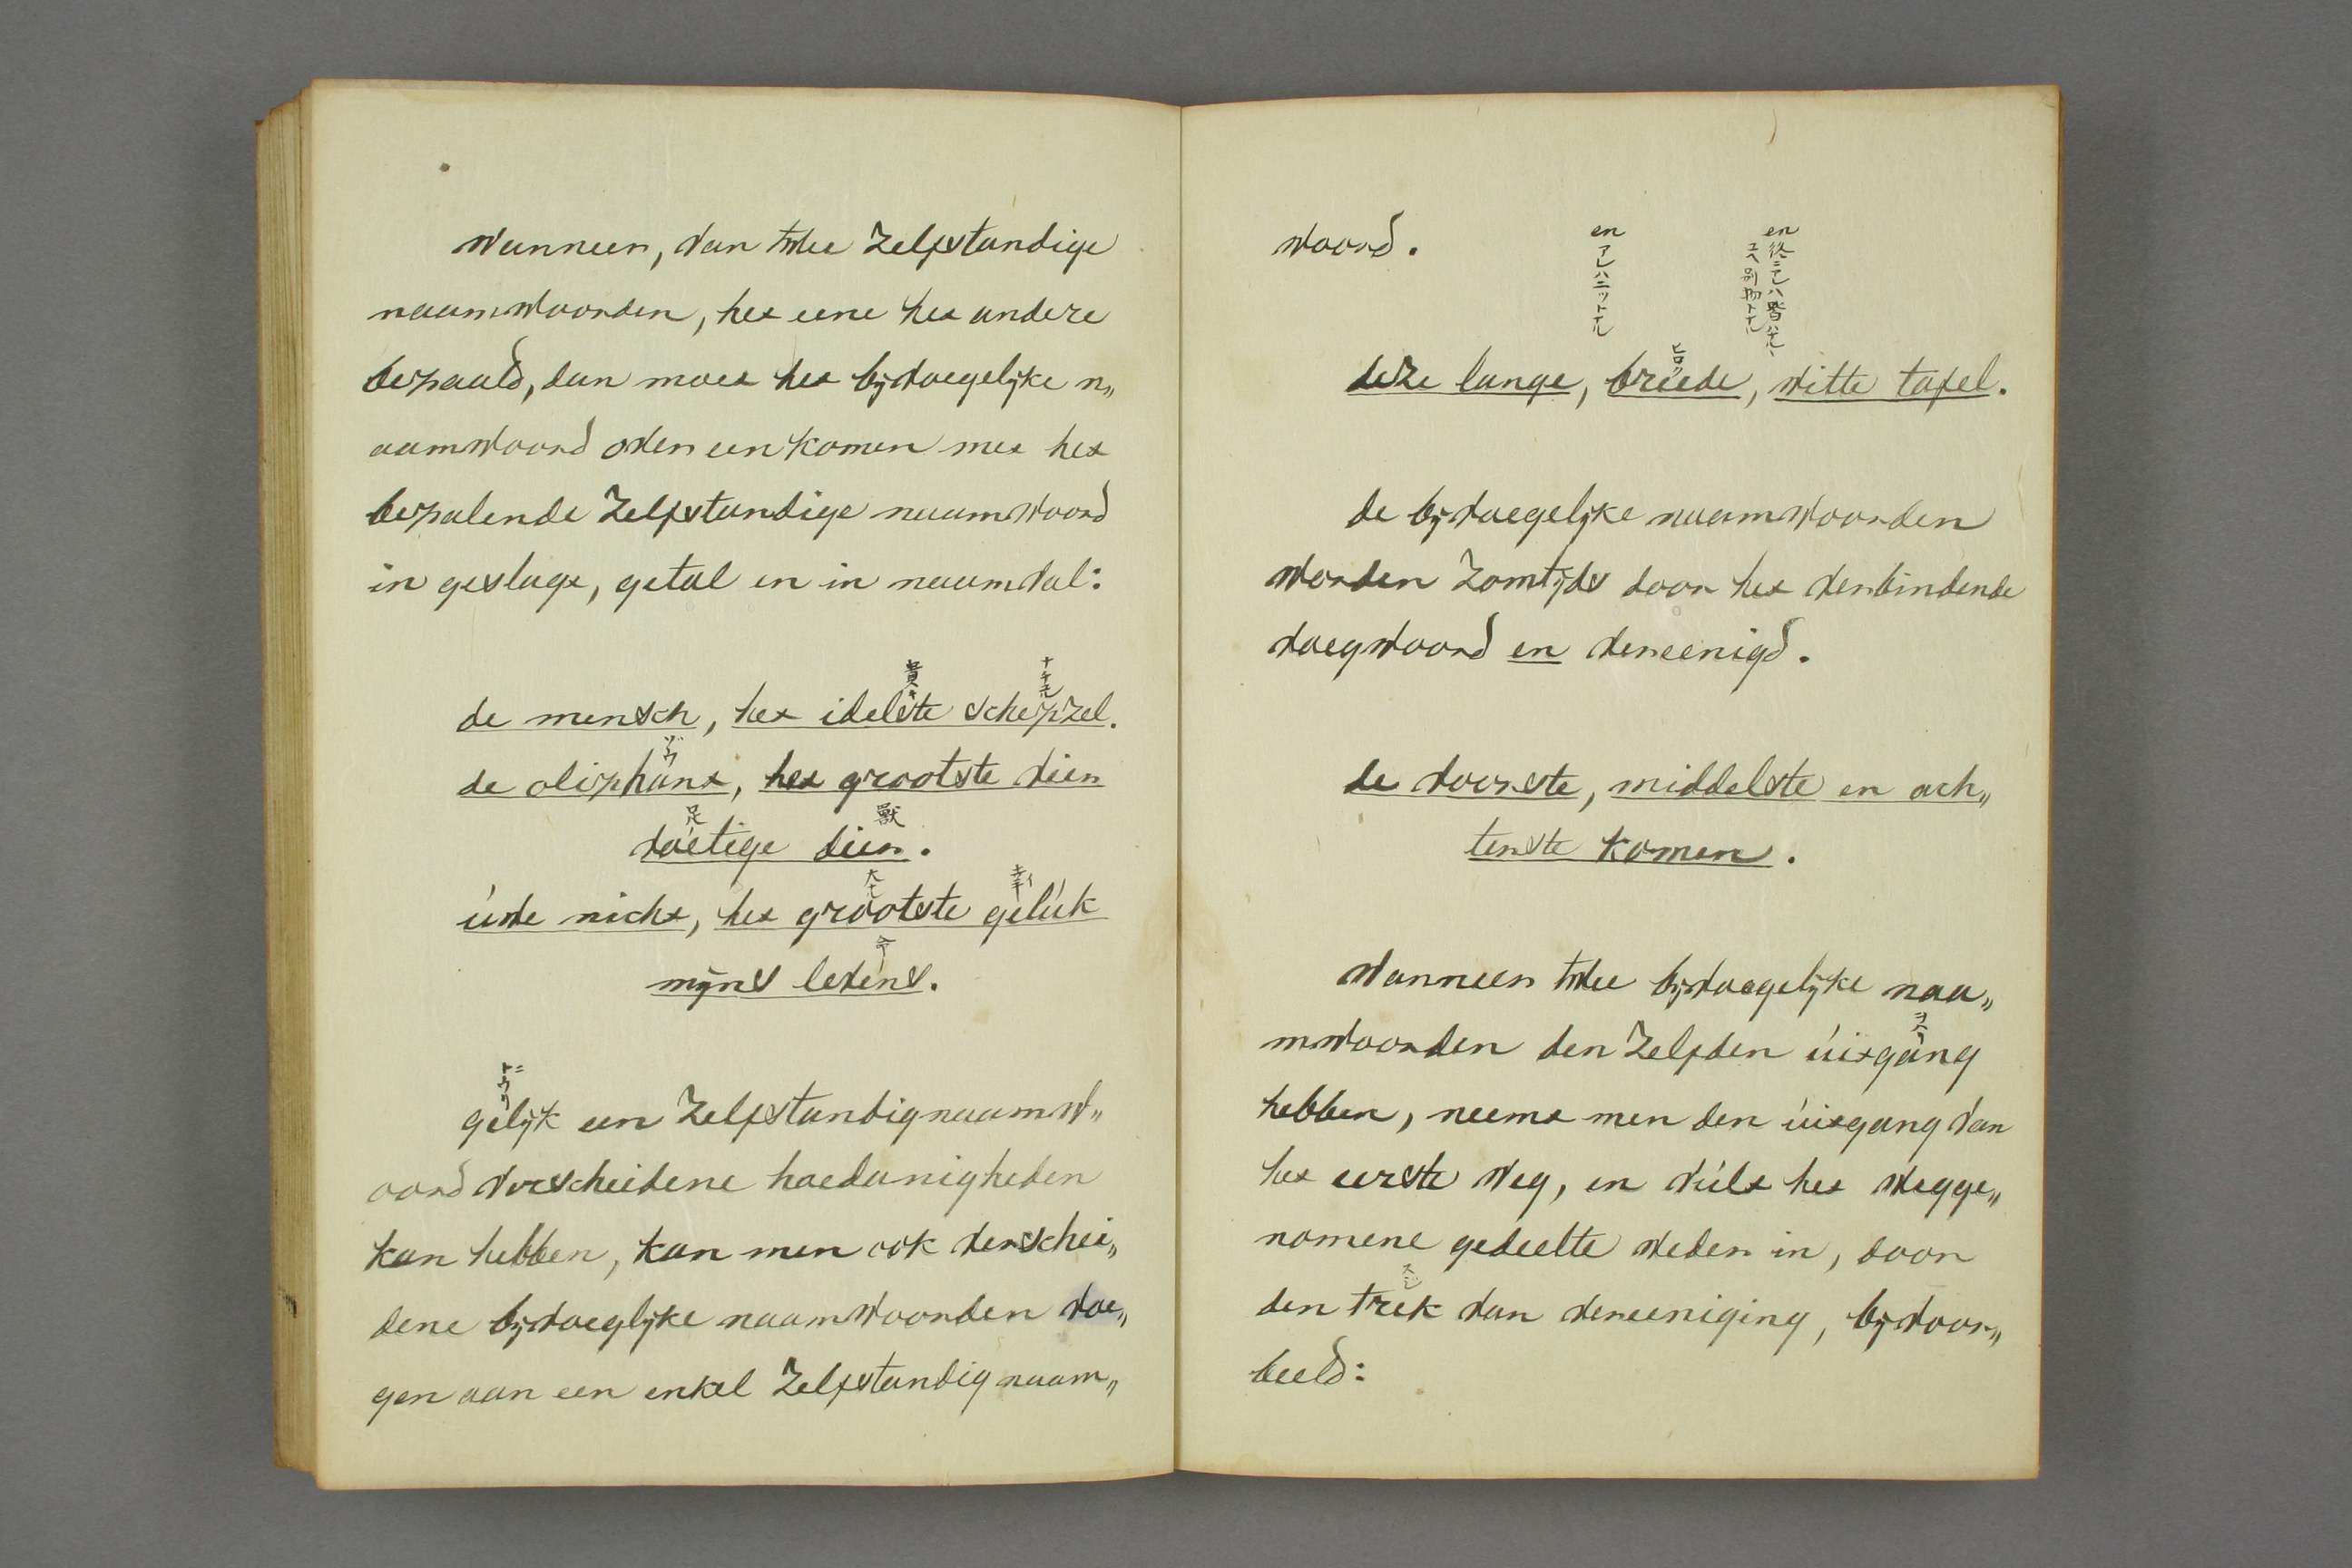 wanneer, van twee zelfstandige
naamwoorden, het eene het andere
bepaald, dan moet het bijvoegelijke n„
aamwoord over een komen met het
bepalende zelfstandige naamwoord
in geslagt, getal en in naamval:
貴キ
de mensch, het idelste schepzel.
ゾウ
de oliphant, het grootste vier
足 獸
voetige dier.
大ナル 幸イ
úwe nicht, het grootste gelúk
命
mijns levens.
gelijk een zelfstandignaamw„
oord verscheidene hoedanigheden
kan hebben, kan men ook verschei„
dene bijvoeglijke naamwoorden voe„
gen aan een enkel zelfstandig naam„
woord.
en アレハニットナル
en
ヒロ
deze lange, breede, witte tafel.
de bijvoegelijke naamwoorden
worden zomtijds door het verbindende
voegwoord en vereenigd.
de voorste, middelste en ach„
terste komen.
wanneer twee bijvoegelijke naa„
mwoorden den zelfden úitgang
hebben, neemt men den úitgang van
het eerste weg, en vúlt het wegge„
nomene gedeelte weder in, door
den trek van vereeniging, bijvoor„
beeld: